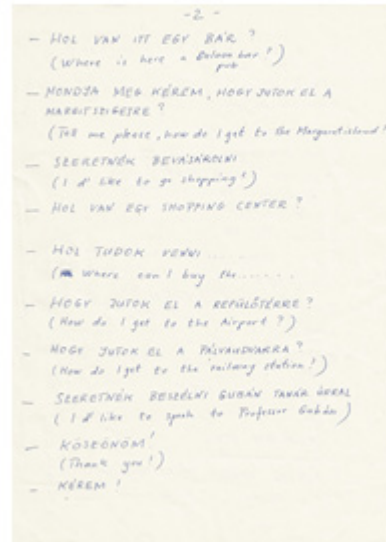 -2-
- HOL VAN ITT EGY BÁR?
(Where is here a bar?)
pub
- MONDJA MEG KÉREM, HOGY JUTOK EL A
MARGITSZIGETRE?
(Tell me please, how do I get to the Margaretisland?
- SZERETNÉK BEVÁSÁROLNI
(I d' like to go shopping!)
- HOL VAN EGY SHOPPING CENTER?
- HOL TUDOK VENNI......
(Where can I buy the.......
- HOGY JUTOK EL A REPÜLŐTÉRRE?
(How do I get to the Airport?)
- HOGY JUTOK EL A PÁLYAUDVARRA?
(How do I get to the railway station!)
- SZERETNÉK BESZÉLNI GUBÁN TANÁR ÚRRAL
(I d' like to speak to Professor Gubán)
- KÖSZÖNÖM!
(Thank you!)
- KÉREM!